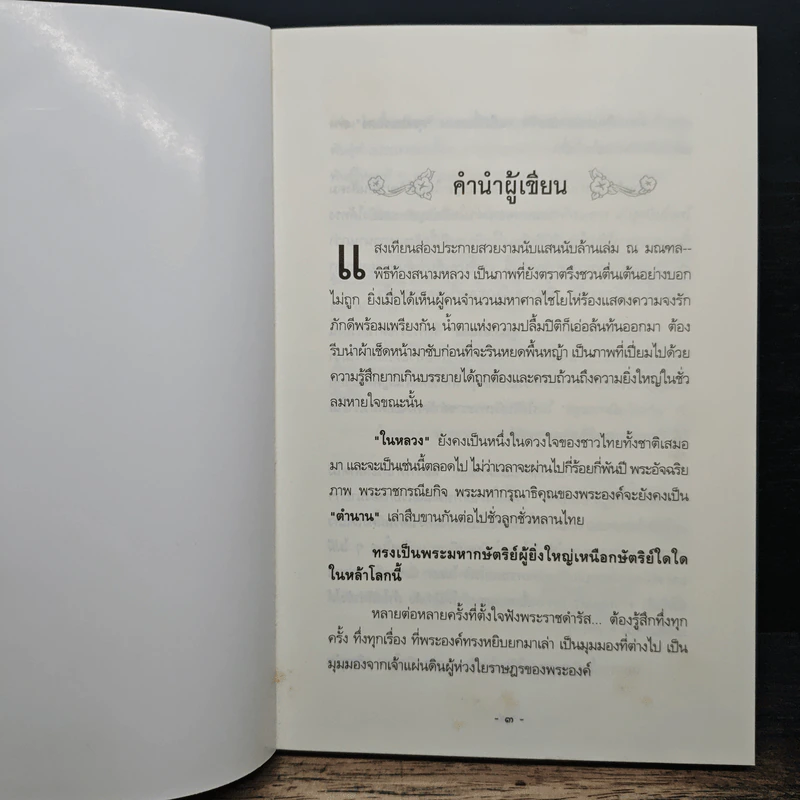 คำนำผู้เขียน
แสงเทียนส่องประกายสวยงามนับแสนนับล้านเล่ม ณ มณฑล--
พิธีท้องสนามหลวง เป็นภาพที่ยังตราตรึงชวนตื่นเต้นอย่างบอก
ไม่ถูก ยิ่งเมื่อได้เห็นผู้คนจำนวนมหาศาลไชโยโห่ร้องแสดงความจงรัก
ภักดีพร้อมเพรียงกัน น้ำตาแห่งความปลื้มปิติก็เอ่อล้นทันออกมา ต้อง
รีบนำผ้าเช็ดหน้ามาซับก่อนที่จะรินหยดพื้นหญ้า เป็นภาพที่เปี่ยมไปด้วย
ความรู้สึกยากเกินบรรยายได้ถูกต้องและครบถ้วนถึงความยิ่งใหญ่ในชั่ว
ลมหายใจขณะนั้น
"ในหลวง" ยังคงเป็นหนึ่งในดวงใจของชาวไทยทั้งชาติเสมอ
มา และจะเป็นเช่นนี้ตลอดไป ไม่ว่าเวลาจะผ่านไปกี่ร้อยกี่พันปี พระอัจฉริย
ภาพ พระราชกรณียกิจ พระมหากรุณาธิคุณของพระองค์จะยังคงเป็น
"ตำนาน" เล่าสืบขานกันต่อไปชั่วลูกชั่วหลานไทย
ทรงเป็นพระมหากษัตริย์ผู้ยิ่งใหญ่เหนือกษัตริย์ใดใด
ในหล้าโลกนี้
หลายต่อหลายครั้งที่ตั้งใจฟังพระราชดำรัส... ต้องรู้สึกทึ่งทุก
ครั้ง ทึ่งทุกเรื่อง ที่พระองค์ทรงหยิบยกมาเล่า เป็นมุมมองที่ต่างไป เป็น
มุมมองจากเจ้าแผ่นดินผู้ห่วงใยราษฎรของพระองค์
- ๓ -